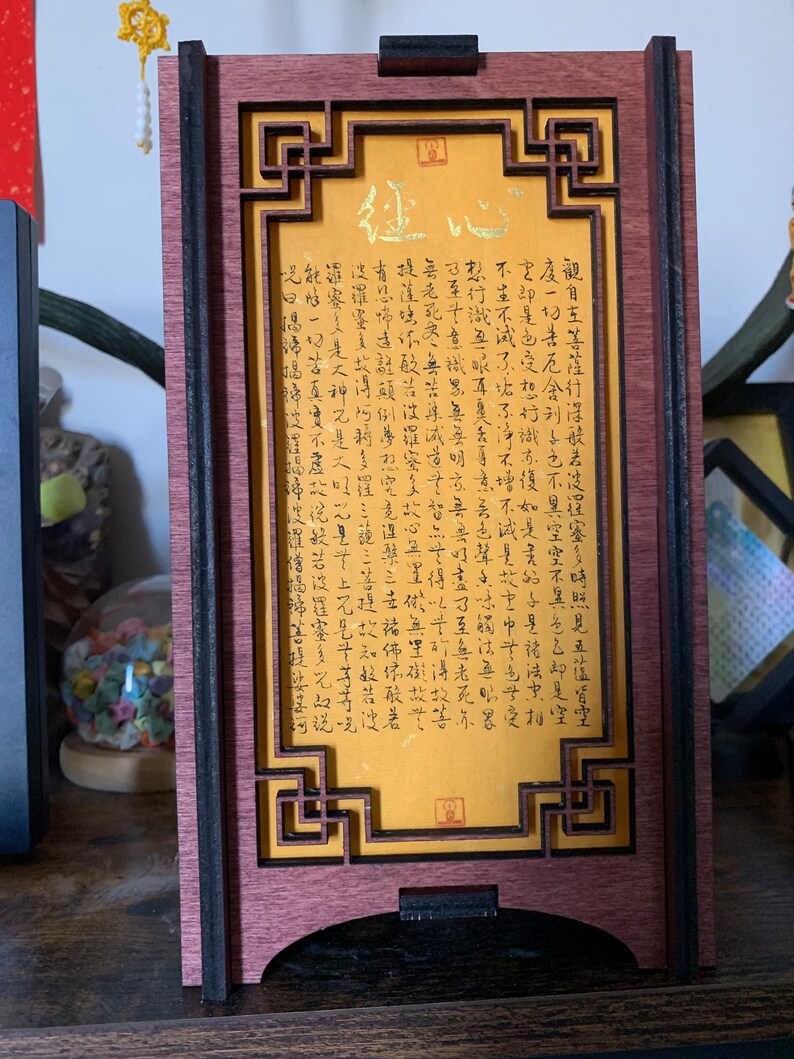 心經
觀自在菩薩行深般若波羅蜜多時照見五蘊皆空
度一切苦厄舍利子色不異空空不異色色即是空
空即是色受想行識亦復如是舍利子是諸法空相
不生不滅不垢不淨不增不減是故空中無色無受
想行識無眼耳鼻舌身意無色聲香味觸法無眼界
乃至無意識界無無明亦無無明盡乃至無老死亦
無老死盡無苦集滅道無智亦無得以無所得故菩
提薩埵依般若波羅蜜多故心無罣礙無罣礙故無
有恐怖遠離顛倒夢想究竟涅槃三世諸佛依般若
波羅蜜多故得阿耨多羅三藐三菩提故知般若波
羅蜜多是大神咒是大明咒是無上咒是無等等咒
能除一切苦真實不虛故說般若波羅蜜多咒即說
咒曰揭諦揭諦波羅揭諦波羅僧揭諦菩提娑婆訶